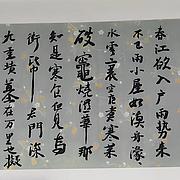 春江欲入户雨勢來
不已雨小屋如漁舟濛
水雲裏空庖煮寒菜
破竈燒濕葦那
知是寒食但見烏
銜帋君門深
九重墳墓在萬里也擬